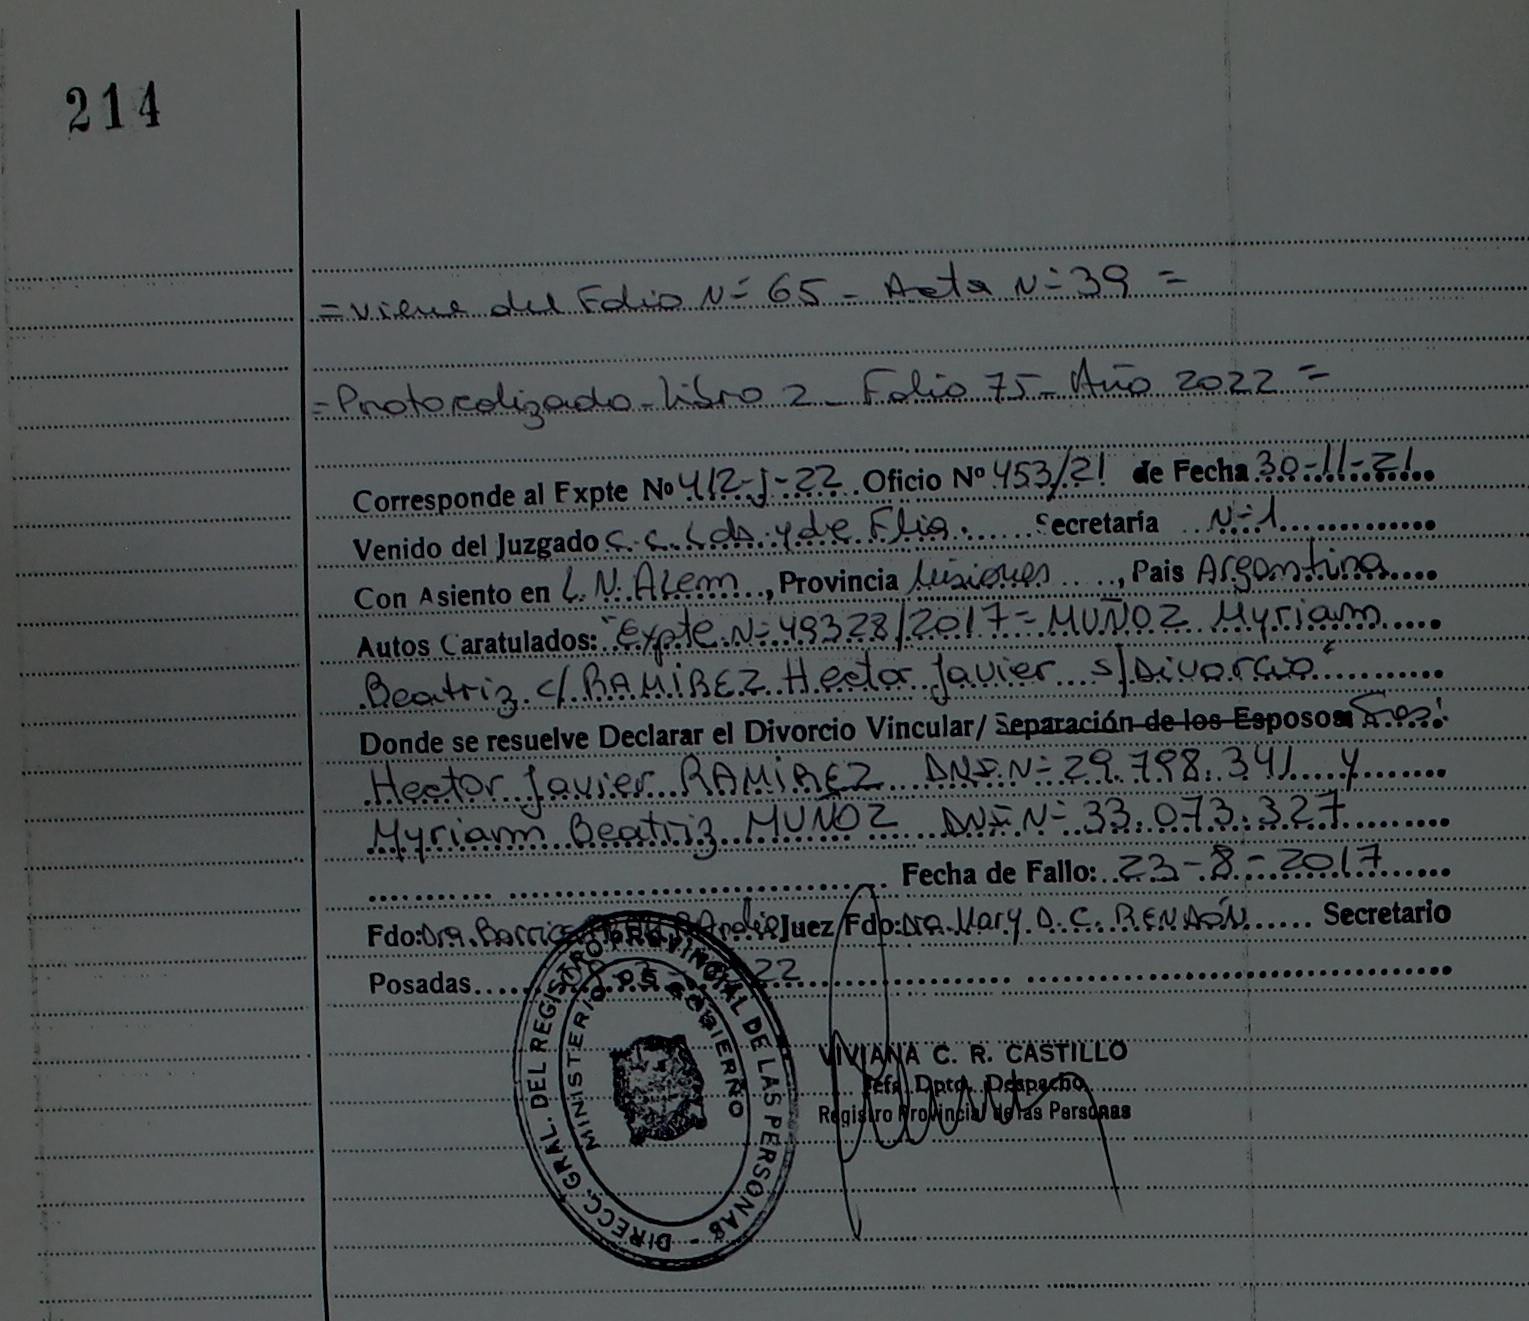 214
= Viene del Folio Nº 65 - Acta Nº 39 =
= Protocolizado - Libro 2 - Folio 75 - Año 2022 =
Corresponde al Expte Nº 412-J-22 Oficio Nº 453/21 de Fecha 30-11-21
Venido del Juzgado C. C. Lab. y de Flia. Secretaría Nº 1
Con Asiento en L. N. Alem, Provincia Misiones, Pais Argentina
Autos Caratulados: "Expte. Nº 49328/2017 = MUÑOZ Myriam
Beatriz c/ RAMIREZ Hector Javier s/ Divorcio"
Donde se resuelve Declarar el Divorcio Vincular/ Separación de los Esposos
Hector Javier RAMIREZ DNI Nº 29.798.341 y
Myriam Beatriz MUÑOZ DNI Nº 33.073.327
Fecha de Fallo: 23-8-2017
Fdo: Dra. Juez Fdo: Dra. Mary D. C. RENDÓN Secretario
Posadas 22
DIRECC. GRAL. DEL REGISTRO PROVINCIAL DE LAS PERSONAS -
MINISTERIO DE GOBIERNO
VIVIANA C. R. CASTILLO
Jefa Dpto. Despacho
Registro Provincial de las Personas